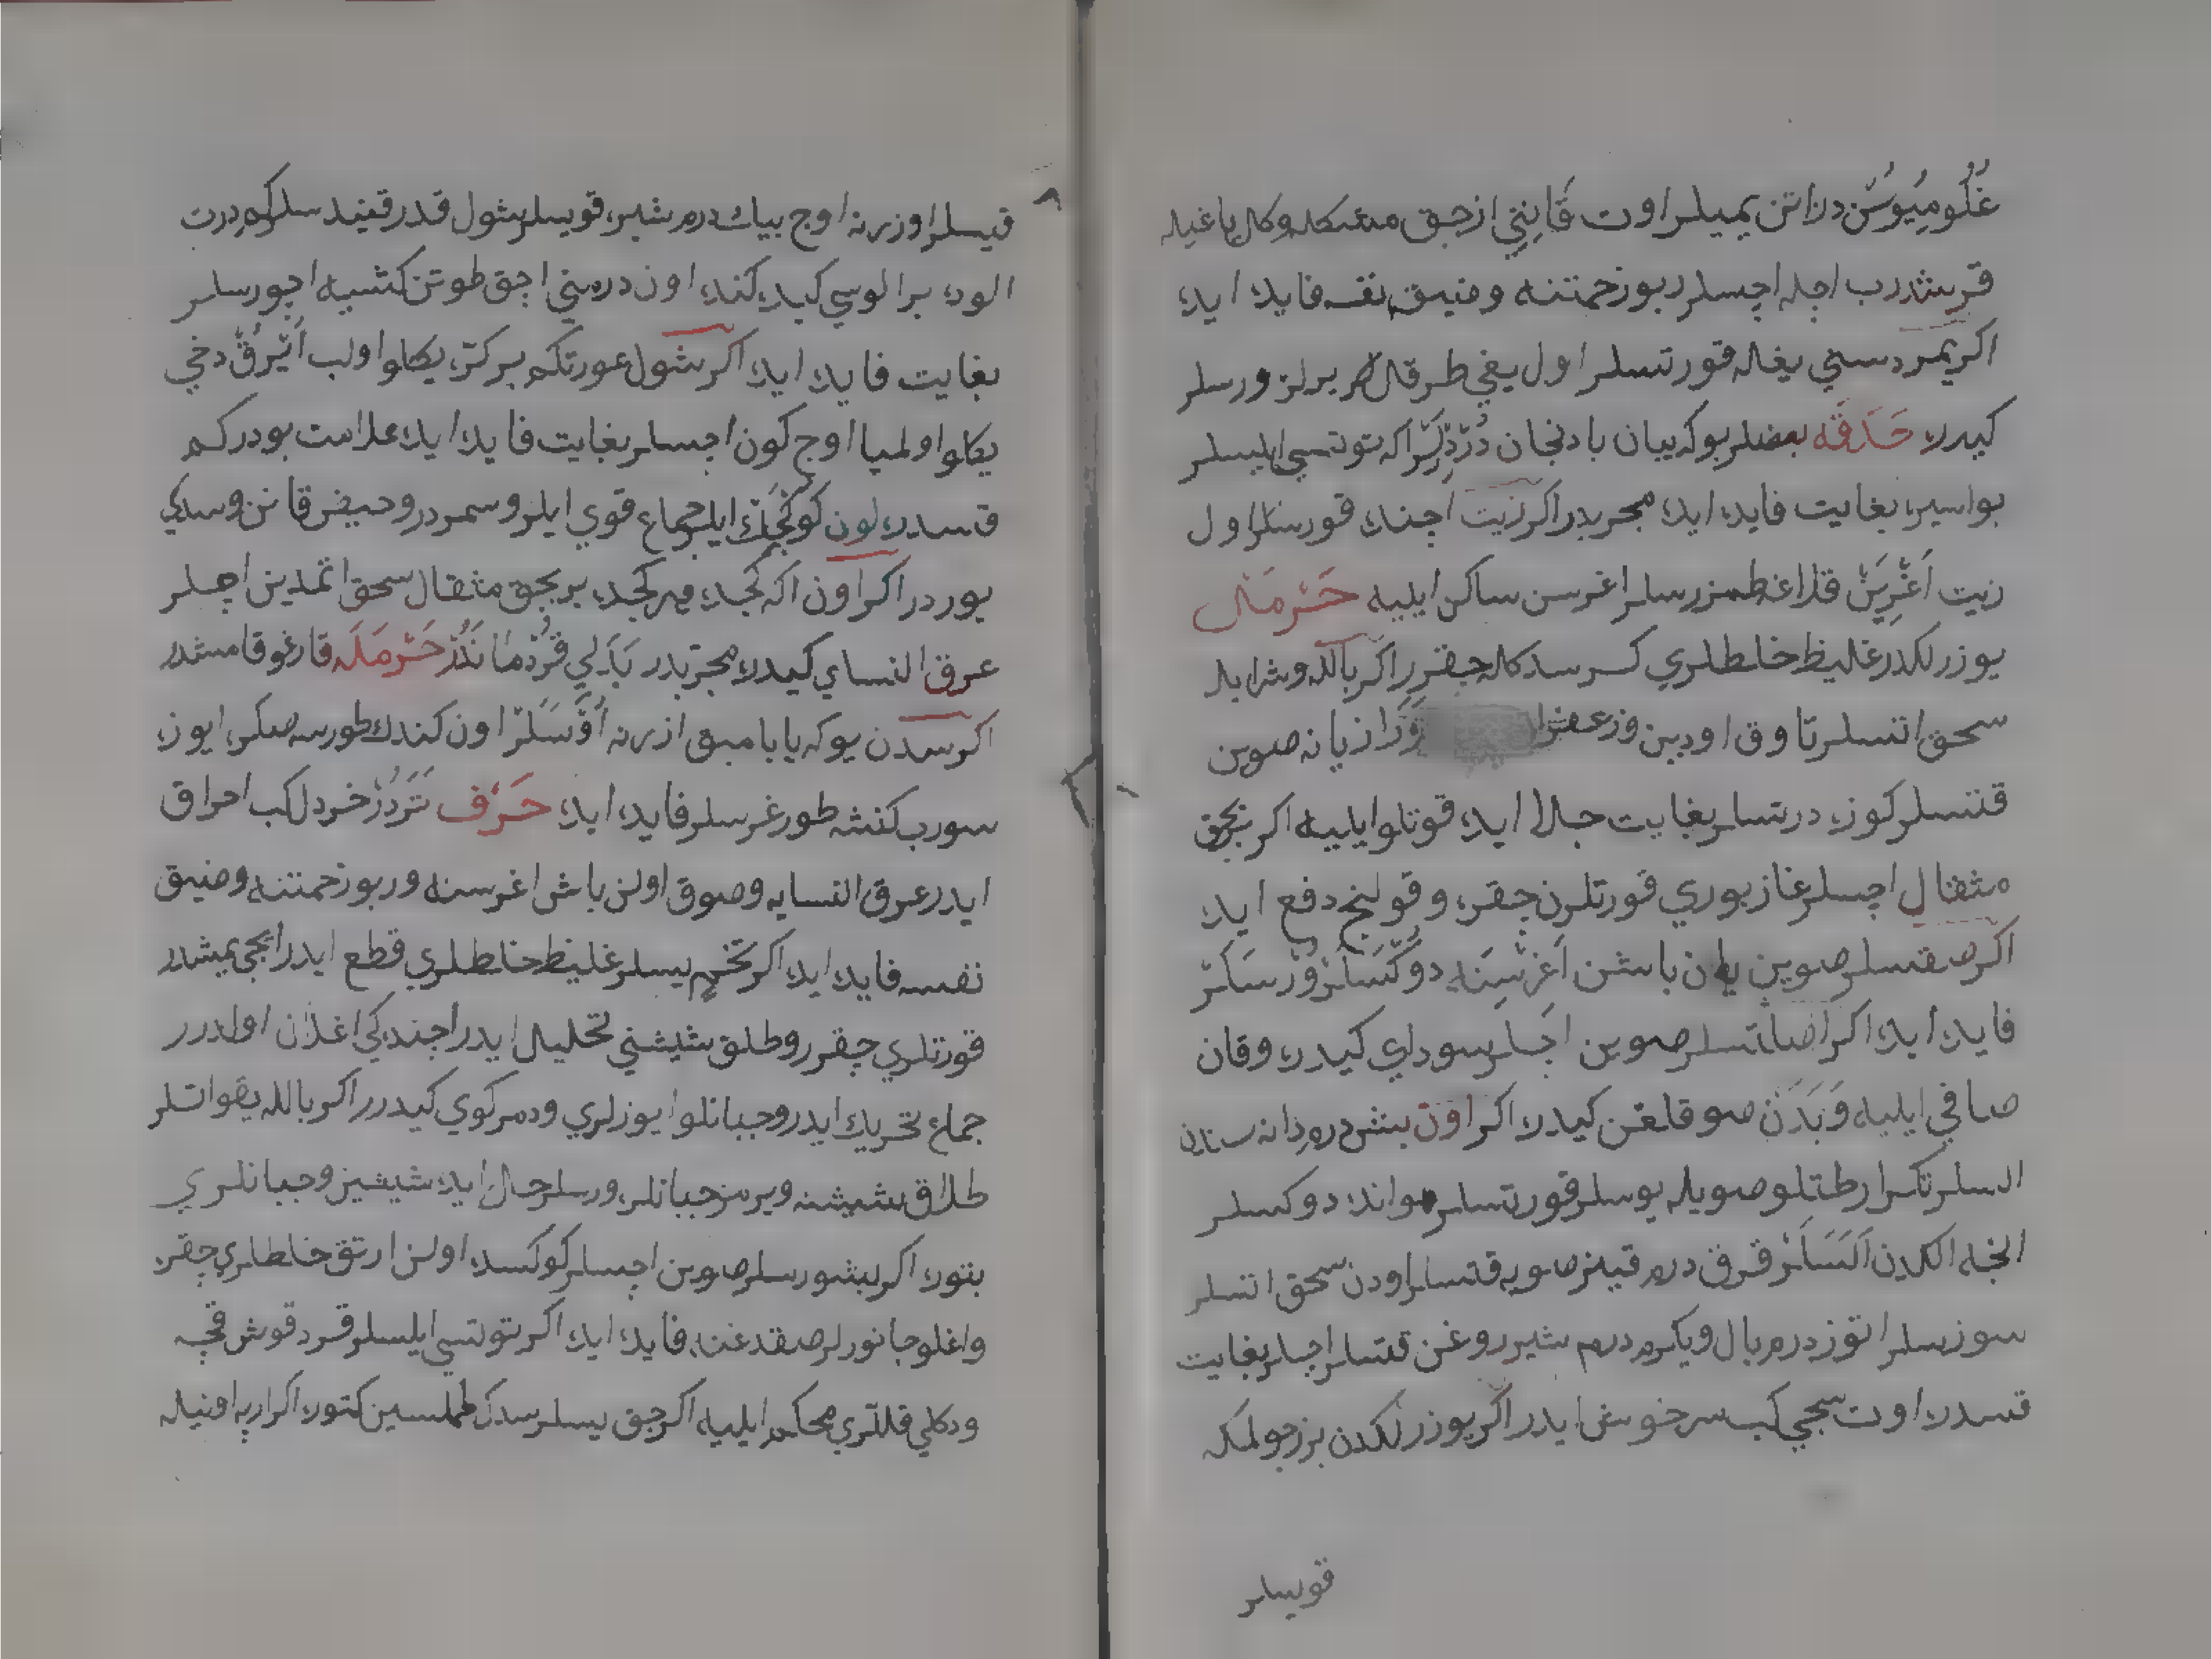 غُلُومِيُوسُنْ دراتن يميلر اوت قَانِتِي ازجق مشكله وكل ياغيله
قرشدرب اجله اچسلر ربوزحمتنه وضيق نفسه فايده ايده
اكر يمردسني يغاله قورتسلر اول يغي طرقال
كيدره حَدَقَه بعضلر بوكه يبان بادنجان دُرْدِلَرْ اكه توتسي ايلسلر
بواسيره بغايت فايده ايده مجربدر اكر زيت اجنده قورسلر اول
زيت اَغْرِيَنْ قلاغه طمزرسلر اغرسن ساكن ايليه حَرْمَل
يوزرلكدر غليظ خلطلري كسر سدكله چقرر اكر بالله وشرابله
سحق اتسلر تاوق اودين وزعفران ورازيانه صوين
قتسلر كوزه درتسلر بغايت جلا ايده قوتلو ايليه اكر بر بحق
مثقال اچسلر غاز بوري قورتلرن چقره وقولنج دفع ايده
اكر صقسلر صوين يلن باشن اَغْرِسِنَه دوكسلر ورسكر
فايده ايده اكر اصلتسلر صوين اچسلر سوداي كيدره وقان
صافي ايليه وَبَدَنْ صوقلغن كيدره اكر اون بشدرم دانه سندن
السلر تكرار طتلو صويله يوسلر قورتسلر هوانده دوكسلر
انجه الكدن اَلَسَلَرْ قرق درم قينر صويه قتسلر اودن سحق اتسلر
سوزسلر اتوز درم بال ويكرم درم شير روغن قتسلر اچسلر بغايت
قسدره اوت سجي كب سرخوش ايدر اكر يوزرلكدن بر زجولمكه
قويسلر
قيسلر اوزرنه اوج بيك درم شيره قويسلر شول قدر قينده سلر كه درت
الوده بر الوسي كيده كنده اون درمني اجق طوتن كشيه اچورسلر
بغايت فايده ايده اكر شول عورتكم بر كز يكلو اولب اَيْرُقْ دخي
يكلو اولميا اوج كون اچسلر بغايت فايده ايده علامت بودركم
قسدره لون كوكچك ايلر جماع قوي ايلر وسمردر وحيض قانن وسدكي
يوردر اكر اون اكه كجده هر كجده بر بحق مثقال سحق اتمدين اچلر
عرق النساي كيدره مجربدر بَدَلِي قُرْدُمَانَدُرْ حَرْمَلَه قارغو قامشدر
اكر سدن يوكه يا بامبق ازرنه اُوْسَلَرْ اون كندك طورسه صكره ايوز
سورب كنشه طورغرسلر فايده ايده حَرْف تَرَدُرْ خردل كب احراق
ايدر عرق النسايه وصوق اولن باش اغرسنه وربوزحمتنه وضيق
نفسه فايده ايده اكر تخمن يسلر غليظ خلطلري قطع ايدر ابجي يمشدر
قورتلري چقرر وطلق شيشني تحليل ايدر اجنده كي اغلان اولدرر
جماع تحريك ايدر وجبانلو ايوزلري ودمركوي كيدرر اكر بالله يقو اتسلر
طلاق شيشنه ويرمز جبانلره ورسلر حل ايده شيشين وجبانلري
بتوره اكر بشورسلر صوين اچسلر كوكسده اولن ارتق خلطلري چقره
واغلو جانورلر صقدغنه فايده ايده اكر توتسي ايلسلر قرد قوش قچه
ودكلي قللري محكم ايليه اكر چق يسلر سدك طملسين كتوره اكر اربه اونيله